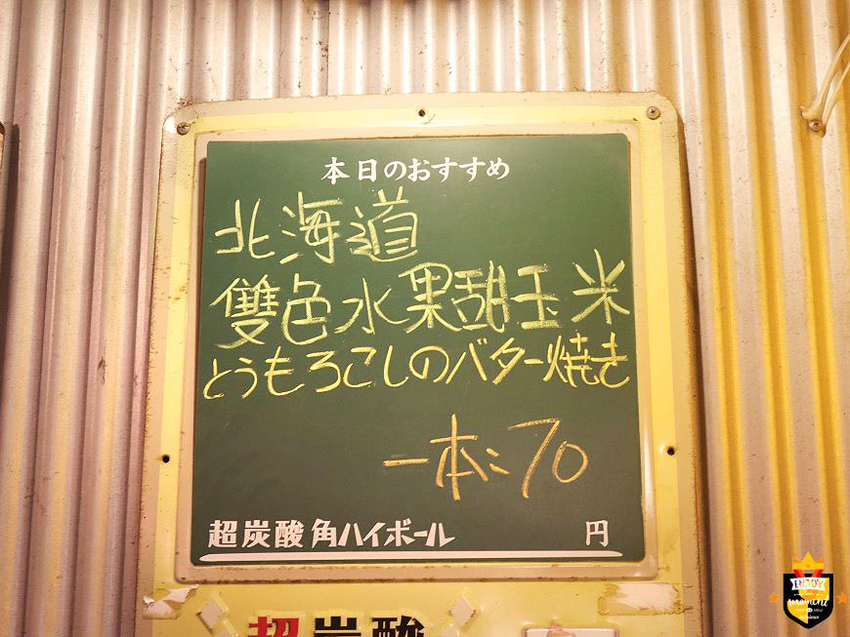 本日のおすすめ
北海道
雙色水果甜玉米
とうもろこしのバター焼き
一本:70
超炭酸 角ハイボール 円
超炭酸
ENJOY